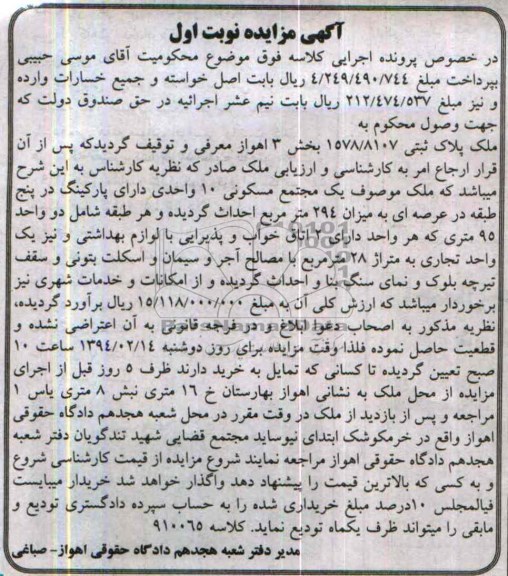 آگهی مزایده نوبت اول
در خصوص پرونده اجرایی کلاسه فوق موضوع محکومیت آقای موسی حبیبی
بپرداخت مبلغ ۴/۲۴۹/۴۹۰/۷۴۴ ریال بابت اصل خواسته و جمیع خسارات وارده
و نیز مبلغ ۲۱۲/۴۷۴/۵۳۷ ریال بابت نیم عشر اجرائیه در حق صندوق دولت که
جهت وصول محکوم به
ملک پلاک ثبتی ۱۵۷۸/۸۱۰۷ بخش ۳ اهواز معرفی و توقیف گردیدکه پس از آن
قرار ارجاع امر به کارشناسی و ارزیابی ملک صادر که نظریه کارشناس به این شرح
میباشد که ملک موصوف یک مجتمع مسکونی ۱۰ واحدی دارای پارکینگ در پنج
طبقه در عرصه ای به میزان ۲۹۴ متر مربع احداث گردیده و هر طبقه شامل دو واحد
۹۵ متری که هر واحد دارای اتاق خواب و پذیرایی با لوازم بهداشتی و نیز یک
واحد تجاری به متراژ ۲۸ مترمربع با مصالح آجر و سیمان و اسکلت بتونی و سقف
تیرچه بلوک و نمای سنگ بنا و احداث گردیده و از امکانات و خدمات شهری نیز
برخوردار میباشد که ارزش کلی آن به مبلغ ۱۵/۱۱۸/۰۰۰/۰۰۰ ریال برآورد گردیده،
نظریه مذکور به اصحاب دعوا ابلاغ و در فرجه قانونی به آن اعتراضی نشده و
قطعیت حاصل نموده فلذا وقت مزایده برای روز دوشنبه ۱۳۹۴/۰۲/۱۴ ساعت ۱۰
صبح تعیین گردیده تا کسانی که تمایل به خرید دارند ظرف ۵ روز قبل از اجرای
مزایده از محل ملک به نشانی اهواز بهارستان خ ۱۶ متری نبش ۸ متری یاس ۱
مراجعه و پس از بازدید از ملک در وقت مقرر در محل شعبه هجدهم دادگاه حقوقی
اهواز واقع در خرمکوشک ابتدای نیوساید مجتمع قضایی شهید تندگویان دفتر شعبه
هجدهم دادگاه حقوقی اهواز مراجعه نمایند شروع مزایده از قیمت کارشناسی شروع
و به کسی که بالاترین قیمت را پیشنهاد دهد واگذار خواهد شد خریدار میبایست
فیالمجلس ۱۰درصد مبلغ خریداری شده را به حساب سپرده دادگستری تودیع و
مابقی را میتواند ظرف یکماه تودیع نماید. کلاسه ۹۱۰۰۶۵
مدیر دفتر شعبه هجدهم دادگاه حقوقی اهواز- صباغی